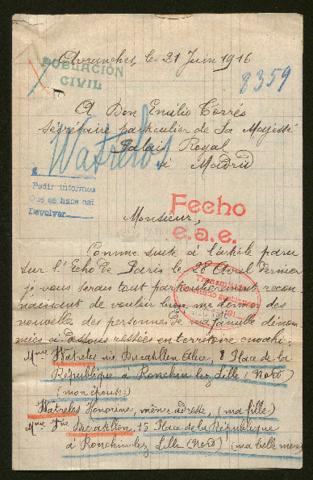 Avranches, le 21 Juin 1916
POBLACIÓN
CIVIL
8359
A Don Emilio Torrés
Secrétaire particulier de Sa Majesté
Palais Royal
à Madrid
Watrelos
Pedir informes
Devolver
Monsieur,
Fecho
e.a.e.
Comme suite à l'article paru
sur l'Echo de Paris le 28 Avril dernier
je vous serais tout particulièrement recon-
naissant de vouloir bien me donner des
nouvelles des personnes de ma famille dénom-
mées ci-dessous restées en territoire envahi:
Mme Watrelos née Ducatillon, 8 Place de la
République à Ronchin lez Lille (Nord)
(mon épouse)
Watrelos Honorine, même adresse, (ma fille)
Mme Ducatillon, 15 Place de la République
à Ronchin lez Lille (Nord) (ma belle mère)